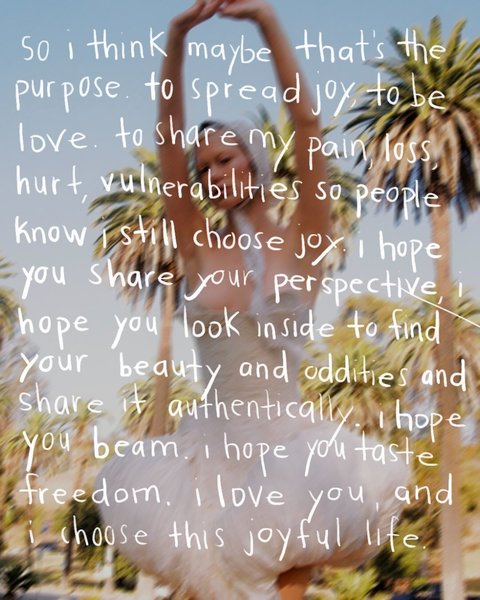 so i think maybe that's the
purpose. to spread joy, to be
love. to share my pain, loss,
hurt, vulnerabilities so people
know i still choose joy. i hope
you share your perspective, i
hope you look inside to find
your beauty and oddities and
share it authentically. i hope
you beam. i hope you taste
freedom. i love you, and
i choose this joyful life.